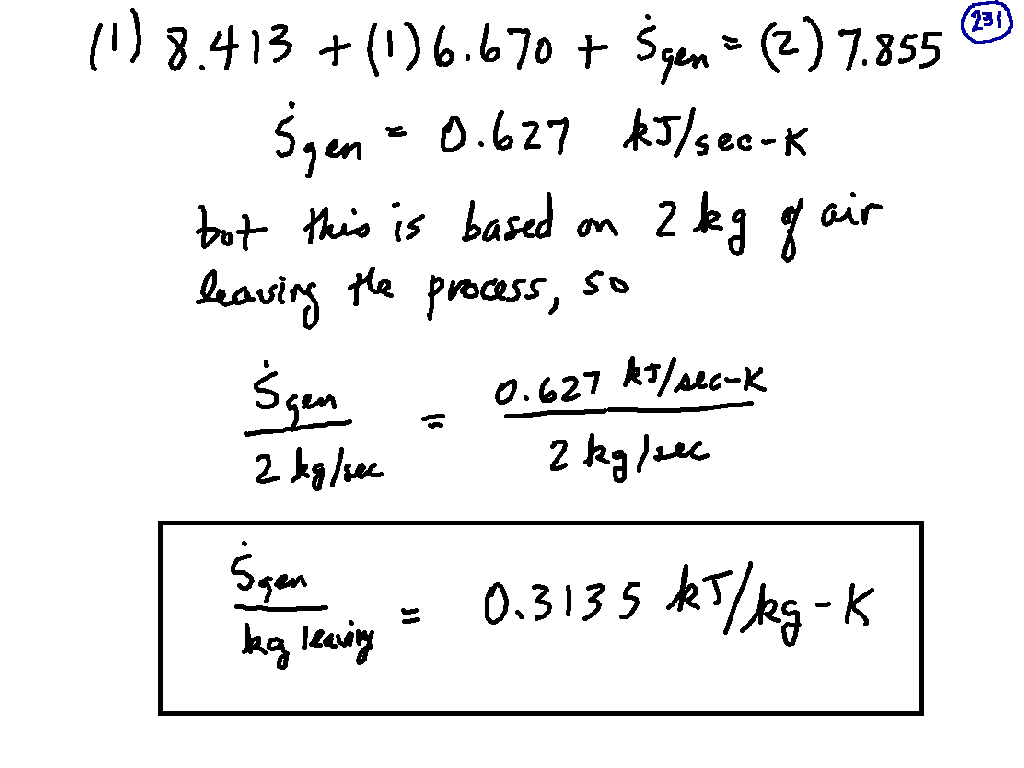 (1) 8.413 + (1) 6.670 + Ṡgen = (2) 7.855 231
Ṡgen = 0.627 kJ/sec-K
but this is based on 2 kg of air
leaving the process, so
Ṡgen / 2 kg/sec = 0.627 kJ/sec-K / 2 kg/sec
Ṡgen / kg leaving = 0.3135 kJ/kg-K